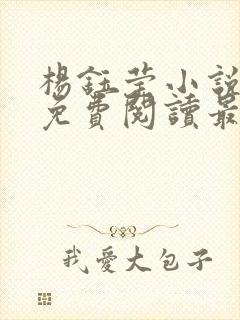 楊鈺莹小說
免費閱讀最
我愛大包子